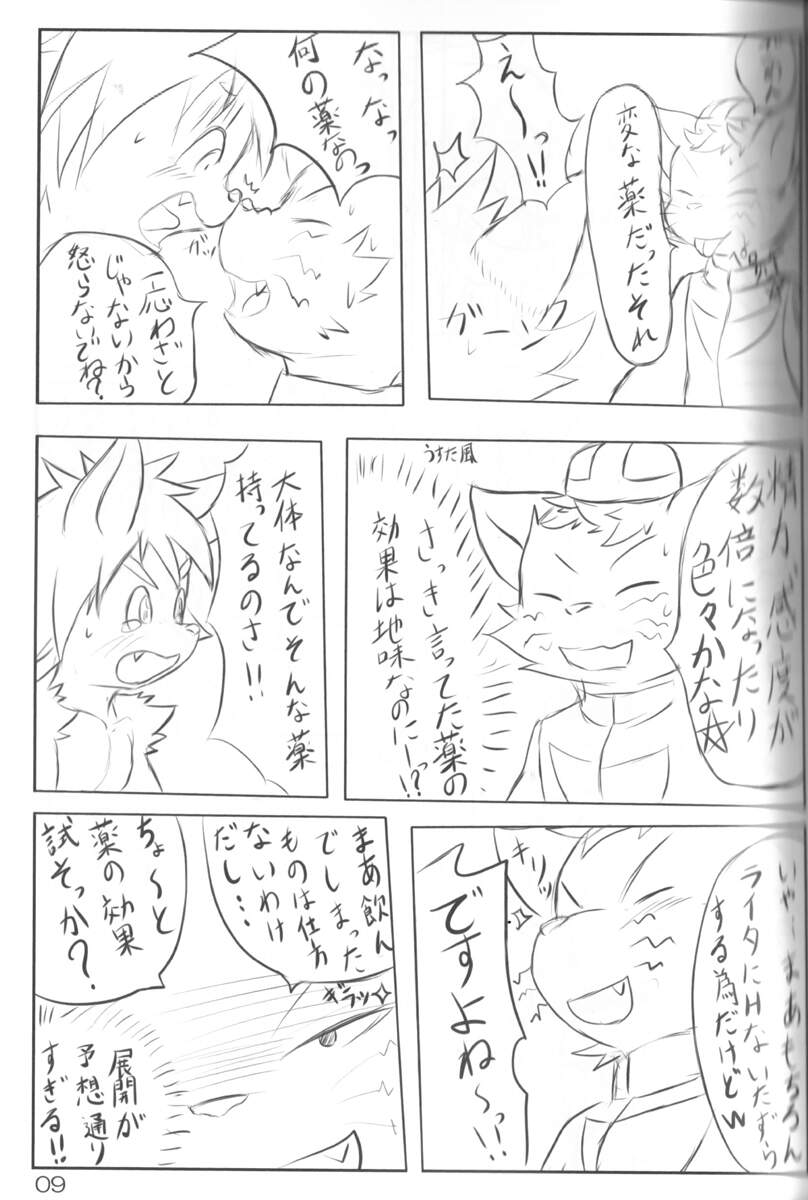 ごめん
変な薬だったそれ
えーっ!!
ペタッ
グーンッ
なっなっ
何の薬なのっ
ガッ
一応わざと
じゃないから
怒らないでね?
精力、感度が
数倍になったり
色々かな☆
うすた風
さっき言ってた薬の
効果は地味なのにーっ!?
大体なんでそんな薬
持ってるのさ!!
いやーまあもちろん
ライタにHないたずら
する為だけどw
キリッ
ですよね〜っ!!
まあ飲ん
でしまった
ものは仕方
ないわけ
だし…
ちょ〜と
薬の効果
試そっか?
ギラッ
展開が
予想通り
すぎる!!
09